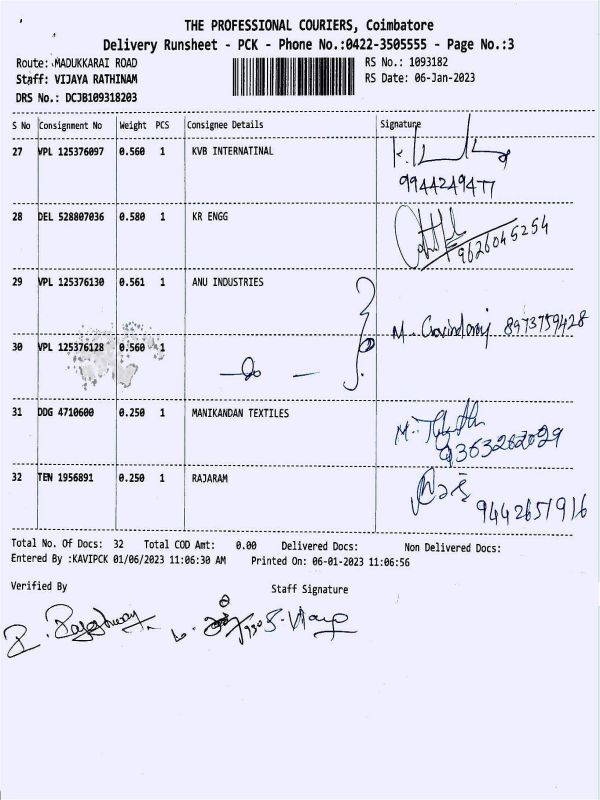 THE PROFESSIONAL COURIERS, Coimbatore
Delivery Runsheet - PCK - Phone No.:0422-3505555 - Page No.:3
Route: MADUKKARAI ROAD RS No.: 1093182
Staff: VIJAYA RATHINAM RS Date: 06-Jan-2023
DRS No.: DCJB109318203
S No Consignment No Weight PCS Consignee Details Signature
27 VPL 125376097 0.560 1 KVB INTERNATINAL
9944249477
28 DEL 528807036 0.580 1 KR ENGG
9626045254
29 VPL 125376130 0.561 1 ANU INDUSTRIES
M. Govindaraj 8973759428
30 VPL 125376128 0.560 1
31 DDG 4710600 0.250 1 MANIKANDAN TEXTILES
9363282029
32 TEN 1956891 0.250 1 RAJARAM
9442651916
Total No. Of Docs: 32 Total COD Amt: 0.00 Delivered Docs: Non Delivered Docs:
Entered By :KAVIPCK 01/06/2023 11:06:30 AM Printed On: 06-01-2023 11:06:56
Verified By Staff Signature